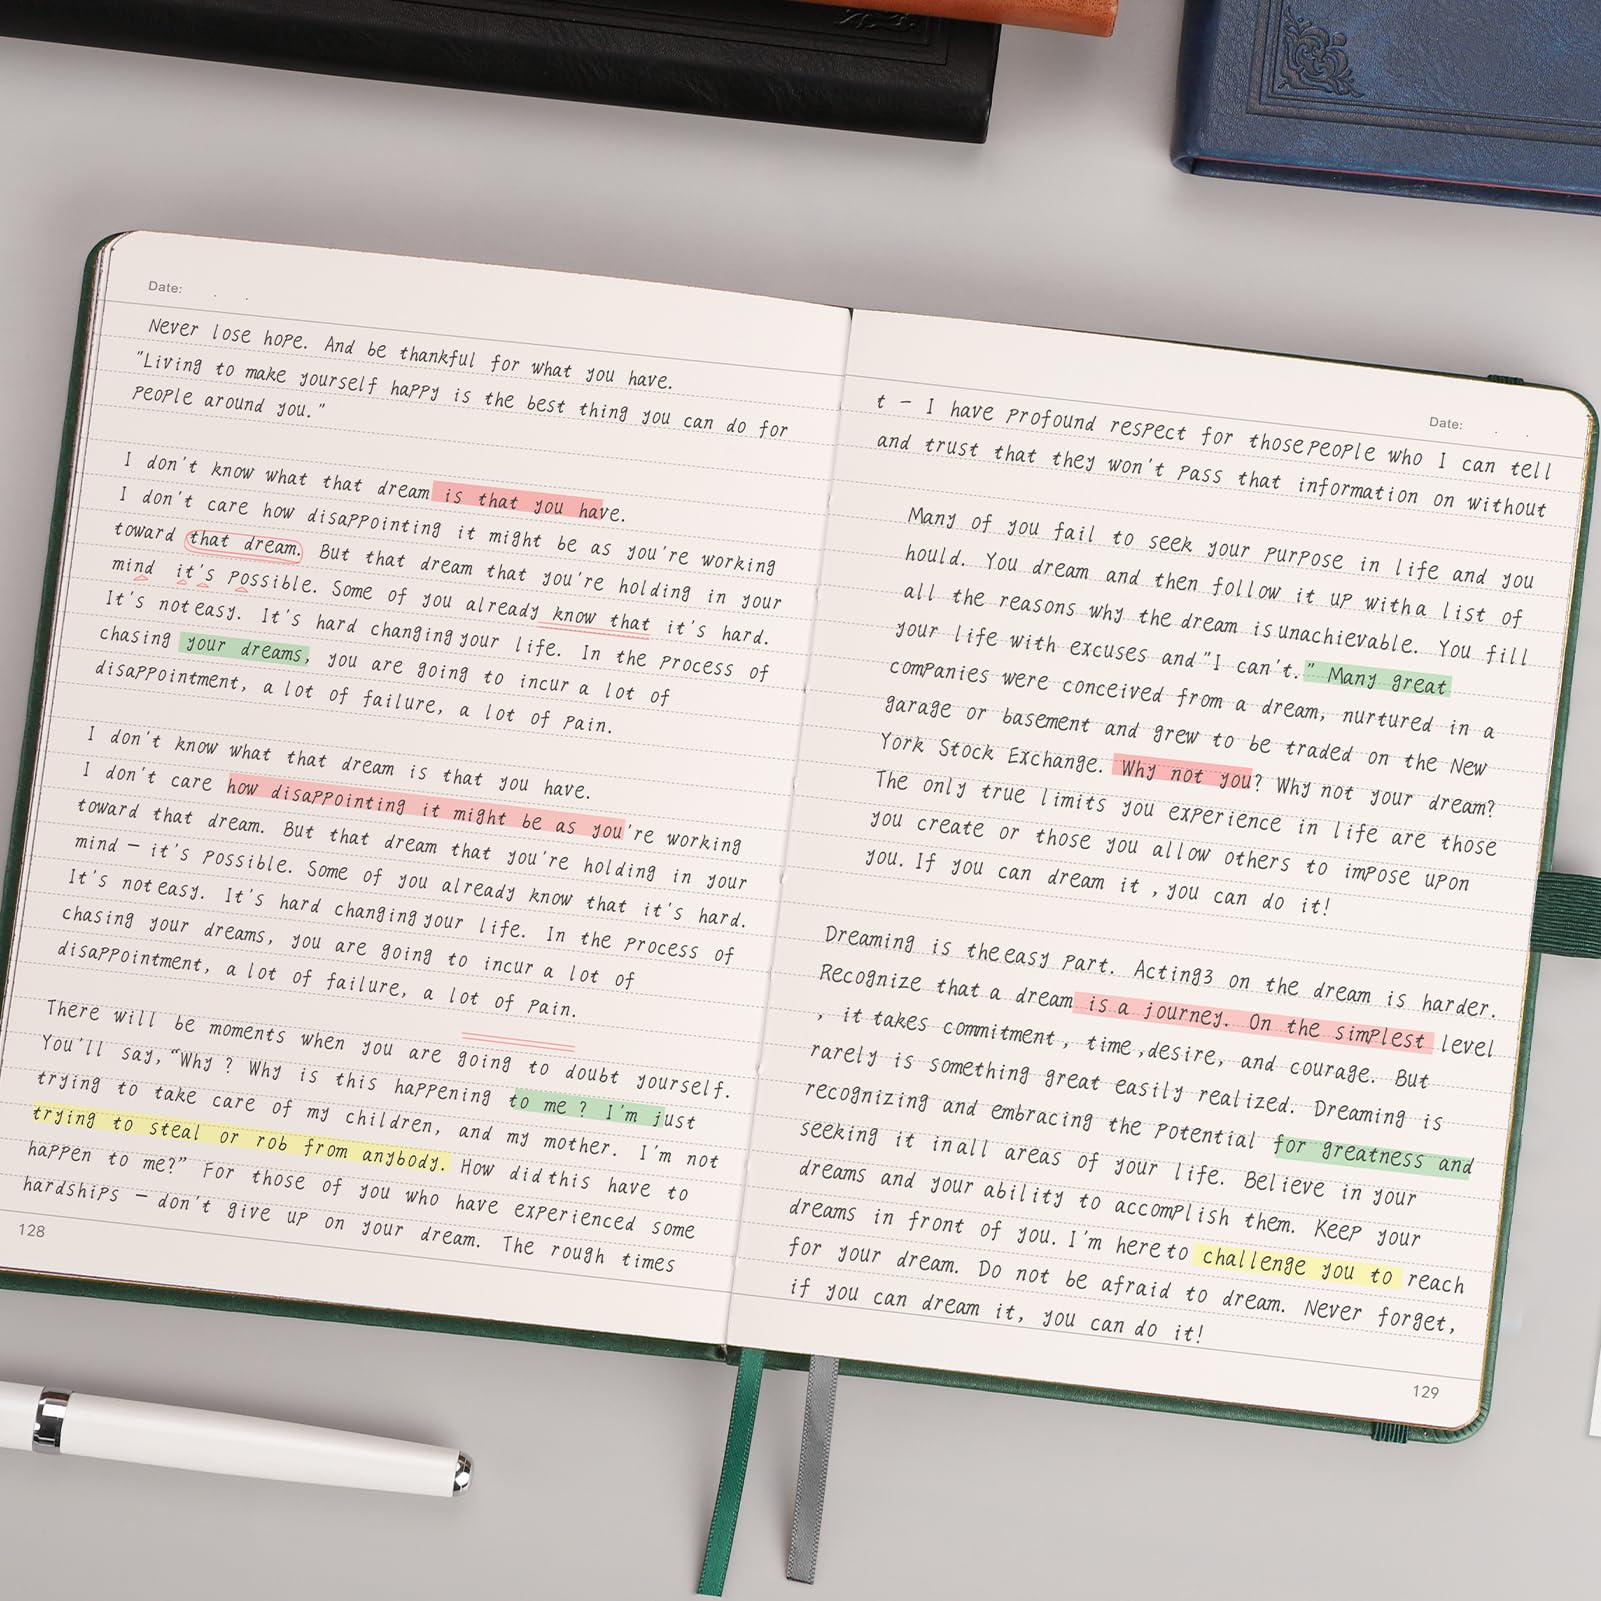 Date:
Never lose hope. And be thankful for what you have.
"Living to make yourself happy is the best thing you can do for
people around you."
I don't know what that dream is that you have.
I don't care how disappointing it might be as you're working
toward that dream. But that dream that you're holding in your
mind it's possible. Some of you already know that it's hard.
It's not easy. It's hard changing your life. In the process of
chasing your dreams, you are going to incur a lot of
disappointment, a lot of failure, a lot of pain.
I don't know what that dream is that you have.
I don't care how disappointing it might be as you're working
toward that dream. But that dream that you're holding in your
mind – it's possible. Some of you already know that it's hard.
It's not easy. It's hard changing your life. In the process of
chasing your dreams, you are going to incur a lot of
disappointment, a lot of failure, a lot of pain.
There will be moments when you are going to doubt yourself.
You'll say, “Why ? Why is this happening to me ? I'm just
trying to take care of my children, and my mother. I'm not
trying to steal or rob from anybody. How did this have to
happen to me?” For those of you who have experienced some
hardships – don't give up on your dream. The rough times
128
Date:
t – I have profound respect for those people who I can tell
and trust that they won't pass that information on without
Many of you fail to seek your purpose in life and you
hould. You dream and then follow it up with a list of
all the reasons why the dream is unachievable. You fill
your life with excuses and "I can't." Many great
companies were conceived from a dream, nurtured in a
garage or basement and grew to be traded on the New
York Stock Exchange. Why not you? Why not your dream?
The only true limits you experience in life are those
you create or those you allow others to impose upon
you. If you can dream it , you can do it!
Dreaming is the easy part. Acting3 on the dream is harder.
Recognize that a dream is a journey. On the simplest level
, it takes commitment, time, desire, and courage. But
rarely is something great easily realized. Dreaming is
recognizing and embracing the potential for greatness and
seeking it in all areas of your life. Believe in your
dreams and your ability to accomplish them. Keep your
dreams in front of you. I'm here to challenge you to reach
for your dream. Do not be afraid to dream. Never forget,
if you can dream it, you can do it!
129